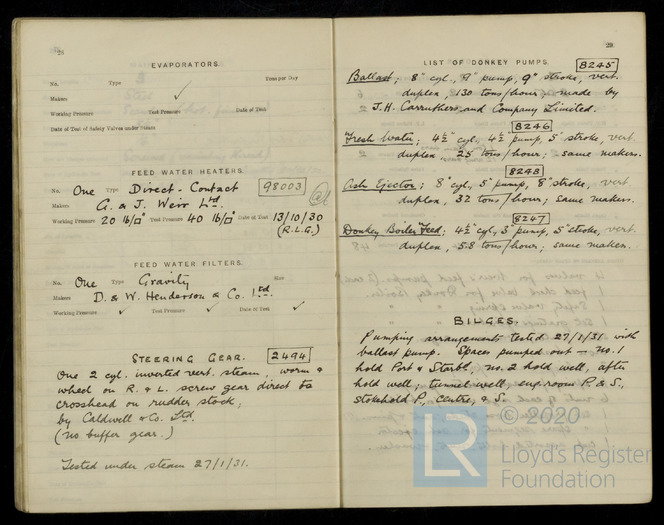 28
EVAPORATORS.
No. Type ✓ Tons per Day
Makers
Working Pressure Test Pressure Date of Test
Date of Test of Safety Valves under Steam
FEED WATER HEATERS
No. One Type Direct-Contact 98003
Makers G. & J. Weir Ltd.
Working Pressure 20 lb/□" Test Pressure 40 lb/□" Date of Test 13/10/30
(R.L.G.)
FEED WATER FILTERS.
No. One Type Gravity Size
Makers D. & W. Henderson & Co. Ltd.
Working Pressure ✓ Test Pressure ✓ Date of Test ✓
STEERING GEAR. 2494
One 2 cyl. inverted vert. steam, worm &
wheel on R. & L. screw gear direct to
crosshead on rudder stock,
by Caldwell & Co. Ltd.
(No buffer gear.)
Tested under steam 27/1/31.
29
LIST OF DONKEY PUMPS. 8245
Ballast; 8" cyl., 9" pump, 9" stroke, vert.
duplex, 130 tons/hour; made by
J.H. Carruthers and Company Limited.
8246
Fresh Water; 4½" cyl., 4½" pump, 5" stroke, vert.
duplex 25 tons/hour; same makers.
8248
Ash Ejector; 8" cyl., 5" pump, 8" stroke, vert
duplex, 32 tons/hour; same makers.
8247
Donkey Boiler Feed; 4½" cyl, 3" pump, 5" stroke, vert.
duplex, 5.8 tons/hour; same makers.
BILGES.
Pumping arrangements tested 27/1/31 with
ballast pump. Spaces pumped out — No. 1
hold Port & Starbd, No. 2 hold well, after
hold well; tunnel well eng. room P. & S.,
stokehold P, Centre, & S.
© 2020
LR
Lloyd's Register
Foundation